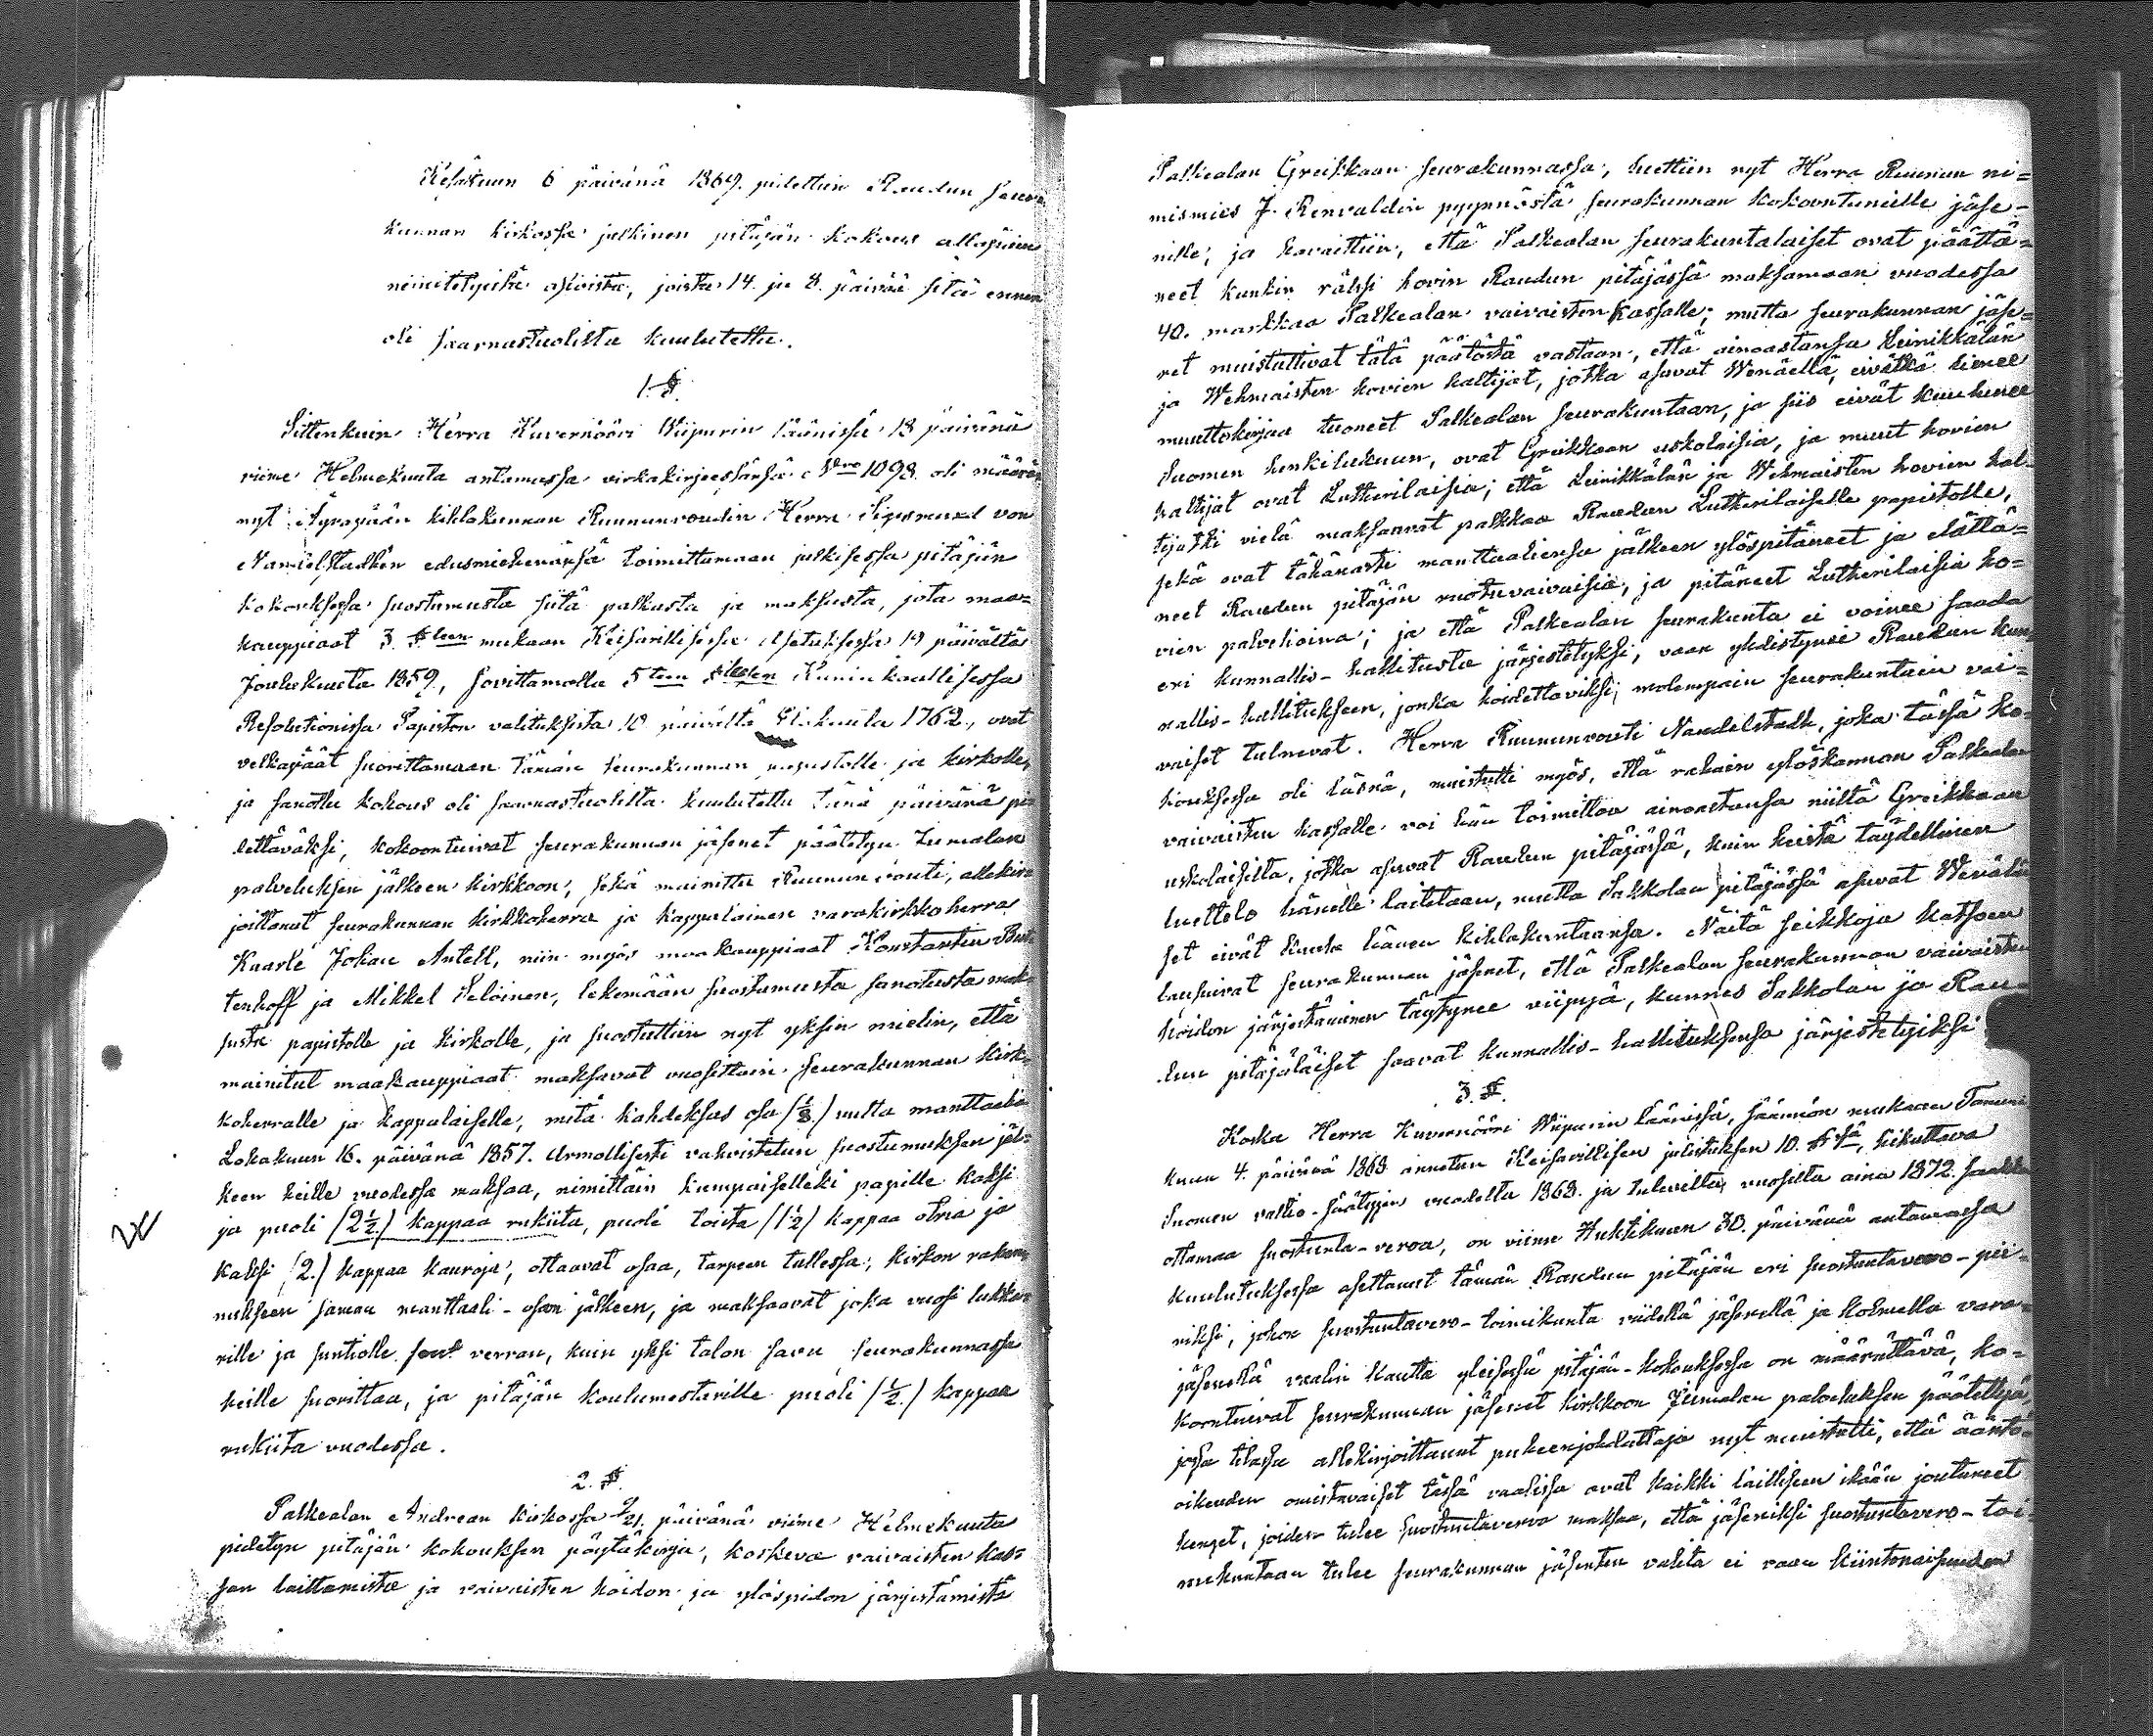 Kesäkuun 6 päivänä 1869. pidettiin Raudun seura
kunnan kirkossa julkinen pitäjän kokous allapäin
nimitetyistä asioista, joista 14. ja 8. päivää sitä ennen
oli saarnastuolista kuulutettu.
1. §.
Sittenkuin Herra Kuvernööri Wiipurin läänissä 13 päivänä
viime Helmekuuta antamassa virkakirjeessänsä Nro 1093. oli määrän
nyt Äyräpään kihlakunnan Ruununvoudin Herra Sigismund von
Nandelstadhin edusmiehenänsä toimittamaan julkisessa pitäjän
kokouksessa suostumusta siitä palkasta ja maksusta, jota maa=
kauppiaat 3. §:leen mukaan Keisarillisessa Asetuksessa 19 päivältä
Joulukuuta 1859, sovittamalla 5teen §:lään Kuninkaallisessa
Resolutionissa Papiston valituksista 10 päivältä Elokuuta 1762., ovat
velkapäät suorittamaan tämän seurakunnan papistolle ja kirkolle,
ja sanottu kokous oli saarnastuolilta kuulutettu tänä päivänä pi=
dettäväksi, kokoontuivat seurakunnan jäsenet päätetyn Jumalan
palveluksen jälkeen kirkkoon, sekä mainittu Ruunun vouti, allekir=
joittanut seurakunnan kirkkoherra ja kappalainen varakirkkoherra
Kaarle Johan Antell, niin myös maakauppiaat Konstantin
tenhoff ja Mikkel Seloinen, tekemään suostumusta sanotusta mak=
susta papistolle ja kirkolle, ja suostuttiin nyt yksin mielin, että
mainitut maakauppiaat maksavat vuosittain seurakunnan kirk=
koherralle ja kappalaiselle, mitä kahdeksas osa (1/8) uutta manttaalia
Lokakuun 16. päivänä 1857. Armollisesti vahvistetun suostumuksen jäl=
keen heille vuodessa maksaa, nimittäin kumpaiselleki papille kaksi
ja puoli (2 1/2) kappaa rukiita, puoli toista (1 1/2) kappaa otria ja
kaksi (2.) kappaa kauroja, ottaavat osaa, tarpeen tullessa, kirkon raken=
nukseen saman manttaali-osan jälkeen, ja maksaavat joka vuosi lukka=
rille ja suntiolle sen verran, kuin yksi talon savu seurakunnassa
heille suorittaa, ja pitäjän koulumestarille puoli (1/2.) kappaa
rukiita vuodessa.
2. §.
Palkealan Andrean kirkossa 9/21. päivänä viime Helmekuuta
pidetyn pitäjän kokouksen pöytäkirja, koskeva vaivaisten kas=
san laittamista ja vaivaisten hoidon ja ylöspidon järjestämistä
Palkealan Greikkaan seurakunnassa, luettiin nyt Herra Ruunun ni=
mismies J. Renvaldin pyynnöstä seurakunnan kokoontuneille jäse-
nille; ja havaittiin, että Palkealan seurakuntalaiset ovat päättä=
neet kunkin rälssi hovin Raudun pitäjässä maksamaan vuodessa
40. markkaa Palkealan vaivaisten kassalle; mutta seurakunnan jäse=
net muistuttivat tätä päätöstä vastaan, että ainoastansa Leinikkälän
ja Wehmaisten hovien haltijat, jotka asuvat Wenäellä, eivätkä lienee
muuttokirjaa tuoneet Palkealan seurakuntaan, ja siis eivät kuulunee
Suomen henkilukuun, ovat Greikkaan uskolaisia, ja muut hovien
haltijat ovat Lutherilaisia; että Leinikkälän ja Wehmaisten hovien hal
tijatki vielä maksaavat palkkaa Raudun Lutherilaiselle papistolle,
sekä ovat tähänasti manttaaliensa jälkeen ylöspitäneet ja elättä=
neet Raudun pitäjän ruotuvaivaisia, ja pitäneet Lutherilaisia ho=
vien palvelioina; ja että Palkealan seurakunta ei voinee saada
eri kunnallis-hallitusta järjestetyksi, vaan yhdistynee Raudun kun
nallis-hallitukseen, jonka hoidettaviksi molempain seurakuntain vai=
vaiset tulnevat. Herra Ruununvouti Nandelstadh, joka tässä ko=
kouksessa oli läsnä, muistutti myös, että rahain ylöskannon Palkealan
vaivaisten kassalle voi hän toimittaa ainoastansa niiltä Greikkaan
uskolaisilta, jotka asuvat Raudun pitäjässä, kuin heistä täydellinen
luettelo hänelle laitetaan, mutta Sakkolan pitäjässä asuvat Wenäläi
set eivät kuulu hänen kihlakuntaansa. Näitä seikkoja katsoen
lausuivat seurakunnan jäsenet, että Palkealan seurakunnan vaivaisten
hoidon järjestäminen täytynee viipyä, kunnes Sakkolan ja Rau=
dun pitäjäläiset saavat kunnallis-hallituksensa järjestetyiksi
3. §.
Koska Herra Kuvernööri Wiipurin läänissä, säännön mukaan Tammi
kuun 4. päivänä 1868 annetun Keisarillisen julistuksen 10. §:ssä, kikuttava
Suomen valtio-säätyjen vuodelta 1868. ja tulevilta vuosilta aina 1872. saakka
ottamaa suostunta-veroa, on viime Huhtikuun 30. päivänä antamassa
kuulutuksessa asettanut tämän Raudun pitäjän eri suostuntavero-pii-
riksi, johon suostuntavero-toimikunta viidellä jäsenellä ja kolmella vara=
jäsenellä vaalin kautta yleisessä pitäjän-kokouksessa on määrättävä, ko=
koontuivat seurakunnan jäsenet kirkkoon Jumalan palveluksen päätettyä,
jossa tilassa allekirjoittanut puheenjohdattaja nyt muistutti, että ääntö-
oikeuden omistavaiset tässä vaalissa ovat kaikki lailliseen ikään joutuneet
henget, joiden tulee suostuntaveroa maksaa, että jäseniksi suostuntavero-toi
mikuntaan tulee seurakunnan jäsenten valita ei vaan kiintonaisuuden